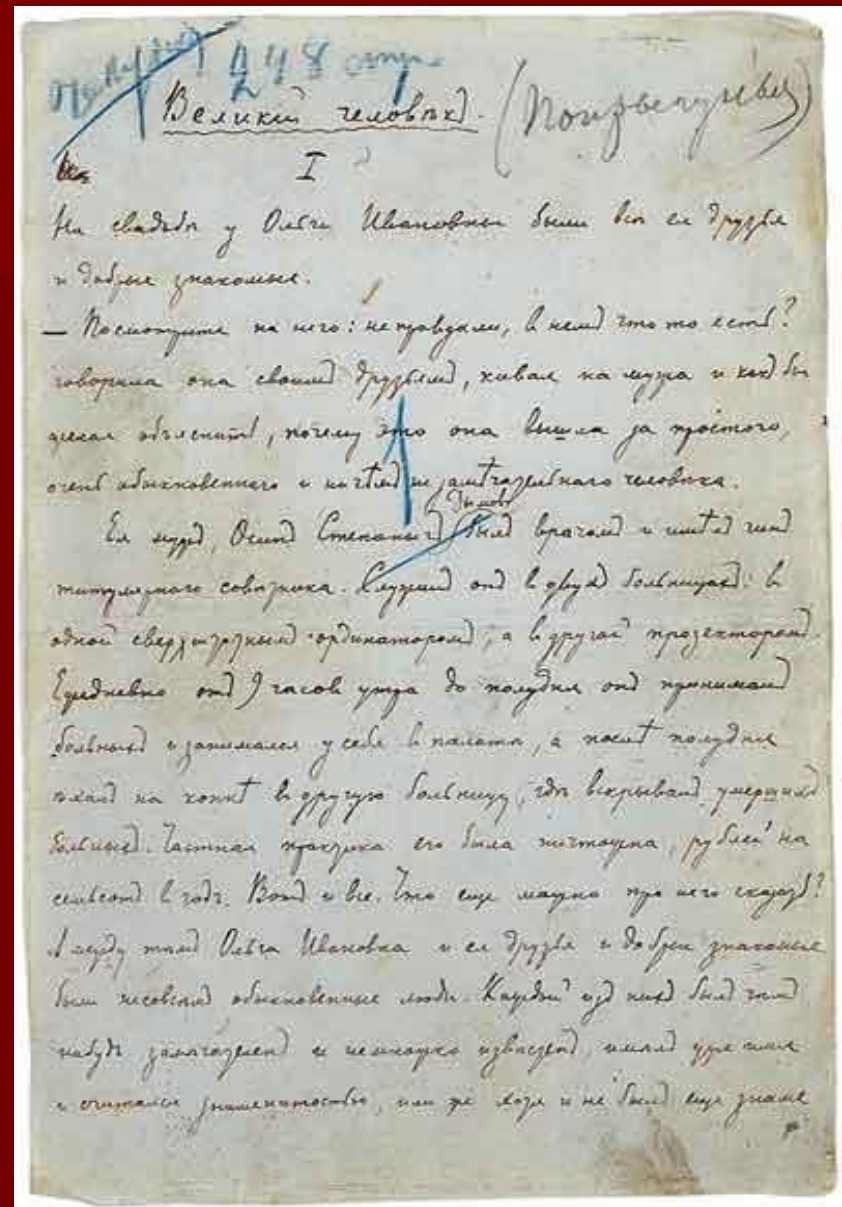 248 стр.
Великій человѣкъ. (Попрыгунья)
I
На свадьбѣ у Ольги Ивановны были всѣ ея друзья
и добрые знакомые.
— Посмотрите на него: не правда ли, въ немъ что то есть?
говорила она своимъ друзьямъ, кивая на мужа и какъ бы
желая объяснить, почему это она вышла за простого,
очень обыкновеннаго и ничѣмъ не замѣчательнаго человѣка.
Дымовъ
Ея мужъ, Осипъ Степанычъ былъ врачомъ и имѣлъ чинъ
титулярнаго совѣтника. Служилъ онъ въ двухъ больницахъ: въ
одной сверхштатнымъ ординаторомъ, а въ другой прозекторомъ.
Ежедневно отъ 9 часовъ утра до полудня онъ принималъ
больныхъ и занимался у себя въ палатѣ, а послѣ полудня
ѣхалъ на конкѣ въ другую больницу, гдѣ вскрывалъ умершихъ
больныхъ. Частная практика его была ничтожна, рублей на
семьсотъ въ годъ. Вотъ и все. Что еще можно про него сказать?
А между тѣмъ Ольга Ивановна и ея друзья и добрые знакомые
были не совсѣмъ обыкновенные люди. Каждый изъ нихъ былъ чѣмъ
нибудь замѣчателенъ и немножко извѣстенъ, имѣлъ уже имя
и считался знаменитостью, или же хотя и не былъ еще знаме